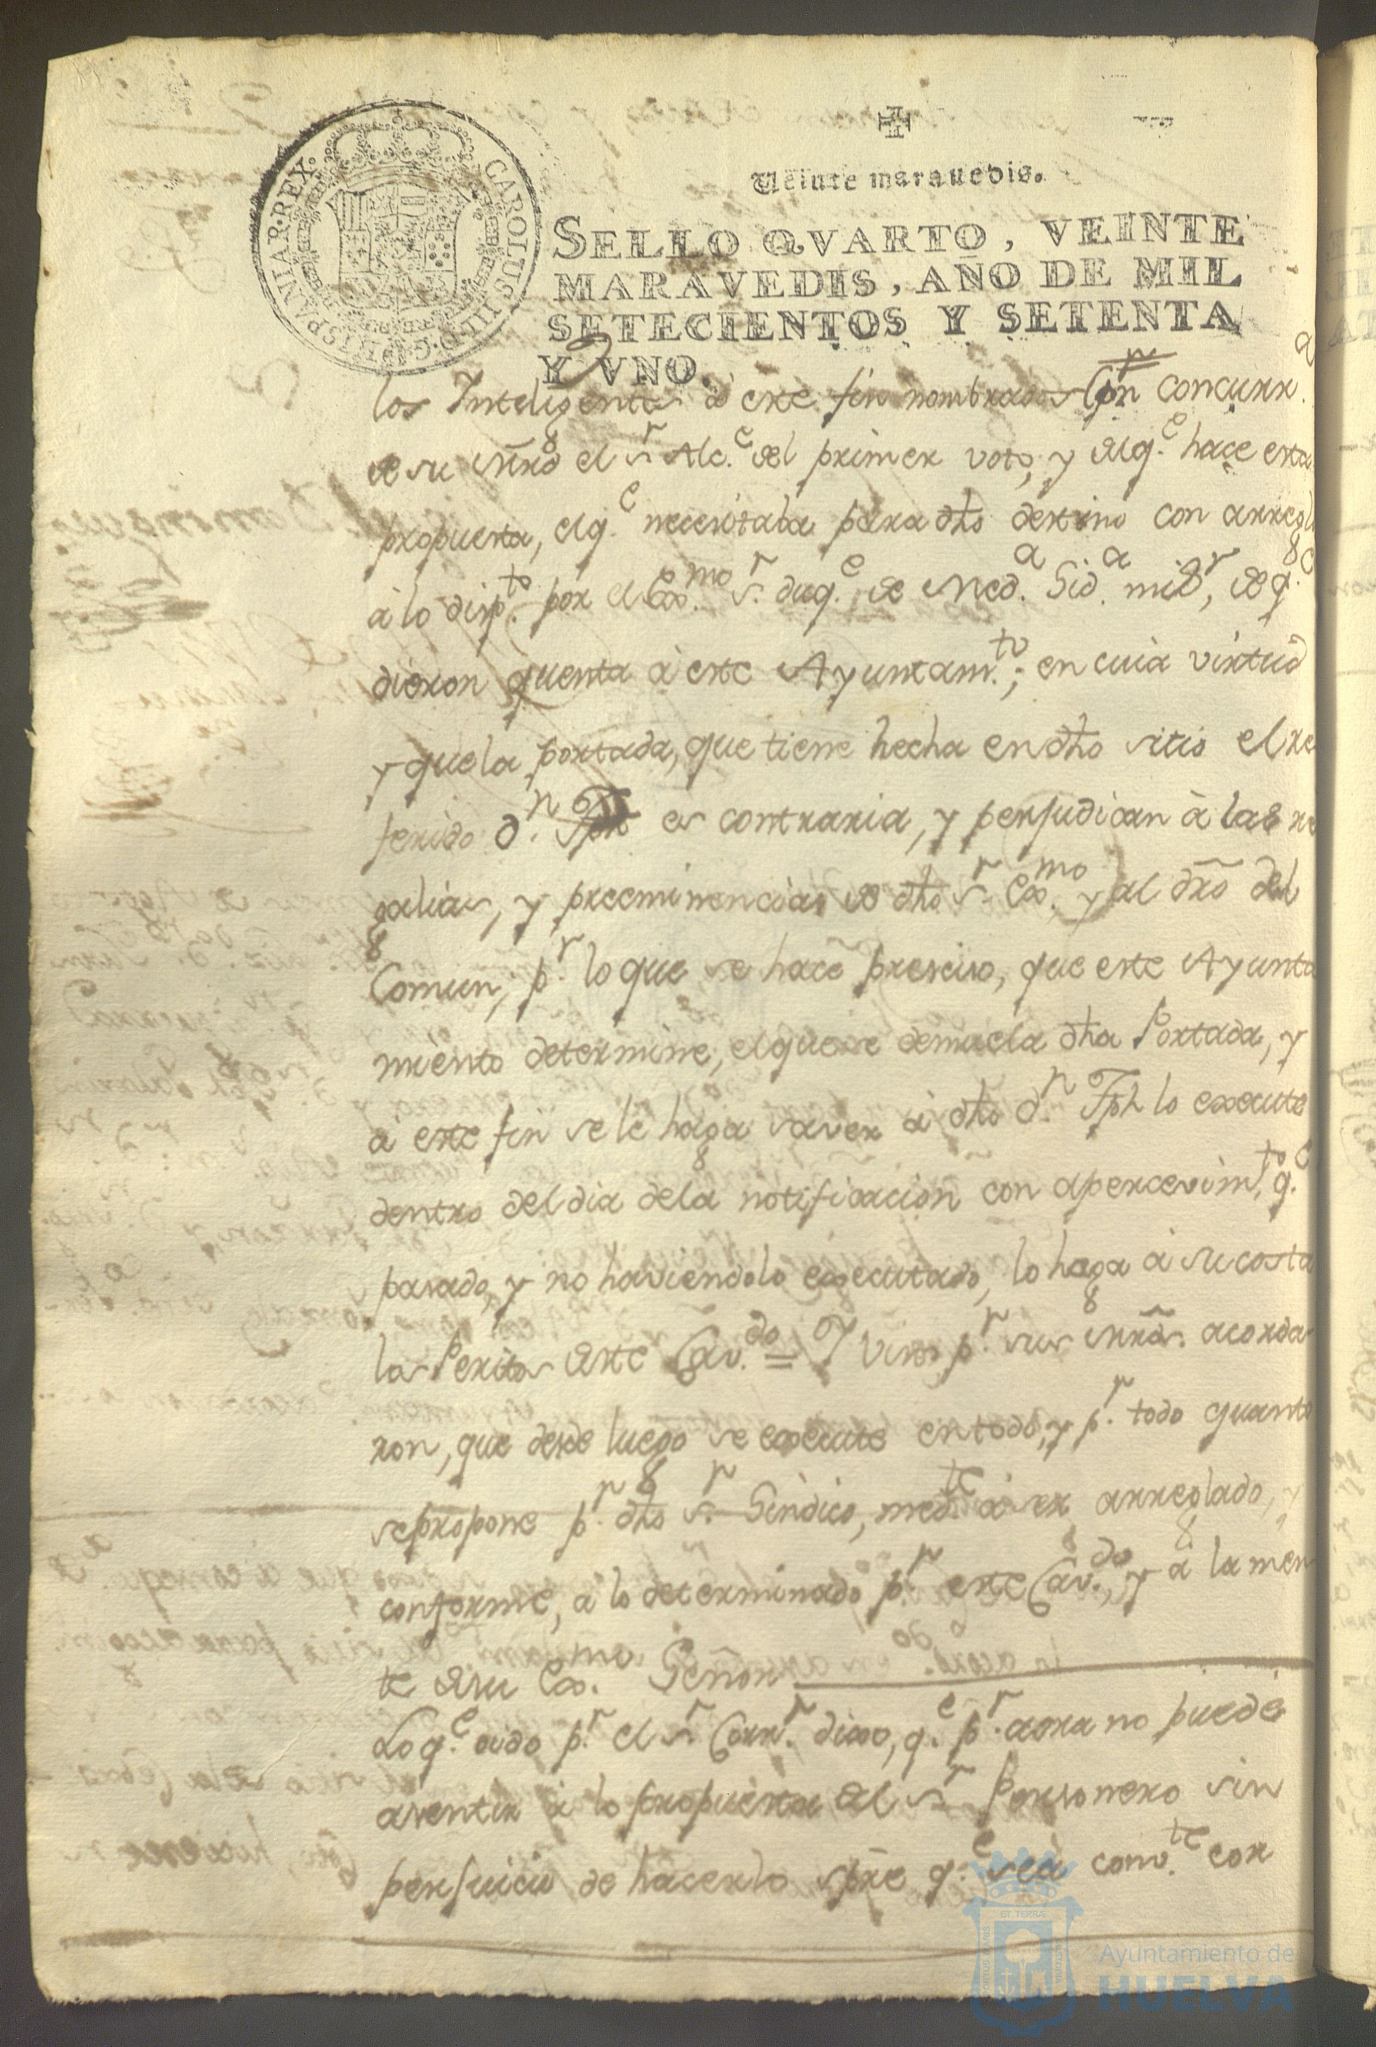 CAROLUS III. D. G. HISPANIAR. REX.
Veinte maravedis.
SELLO QVARTO, VEINTE
MARAVEDIS, AÑO DE MIL
SETECIENTOS Y SETENTA
Y VNO.
los Inteligentes à este fin nombrados Con concurr.a
de su Mrd el sr Alc.e del primer voto, y del q.e hace esta
propuesta, el q.e necesitaba para dho destino con arreglo
à lo disp.to por el Exmo. sr. duq.e de Med.a Sid.a mi sr, de q.e
dieron quenta à este Ayuntam.to; en cuia virtud
y que la portada, que tiene hecha en dho sitio el re
ferido d.n Jph es contraria, y perjudican à las re
galias, y preeminencias de dho sr. Exmo. y al dro del
Comun, p.r lo que se hace presciso, que este Ayunta
miento determine, el que se demuela dha Portada, y
à este fin se le haga saver à dho d.n Jph lo execute
dentro del dia de la notificacion con apercevim.to q.e
pasado, y no haviendolo executado, lo haga à su costa
los Peritos deste Cav.do = Y Visto p.r sus Mrds. acorda
ron, que desde luego se execute en todo, y p.r todo quanto
se propone p.r dho sr. Sindico, med.te à ser arreglado, y
conforme, a lo determinado p.r este Cav.do, y à la men
te de su Exmo. Señor
Lo q.e oido p.r el sr. Corr.r dixo, q.e p.r aora no puede
asentir à lo propuesto del sr. Personero sin
perjuicio de hacerlo spre q.e sea conv.te con
Ayuntamiento de
HUELVA